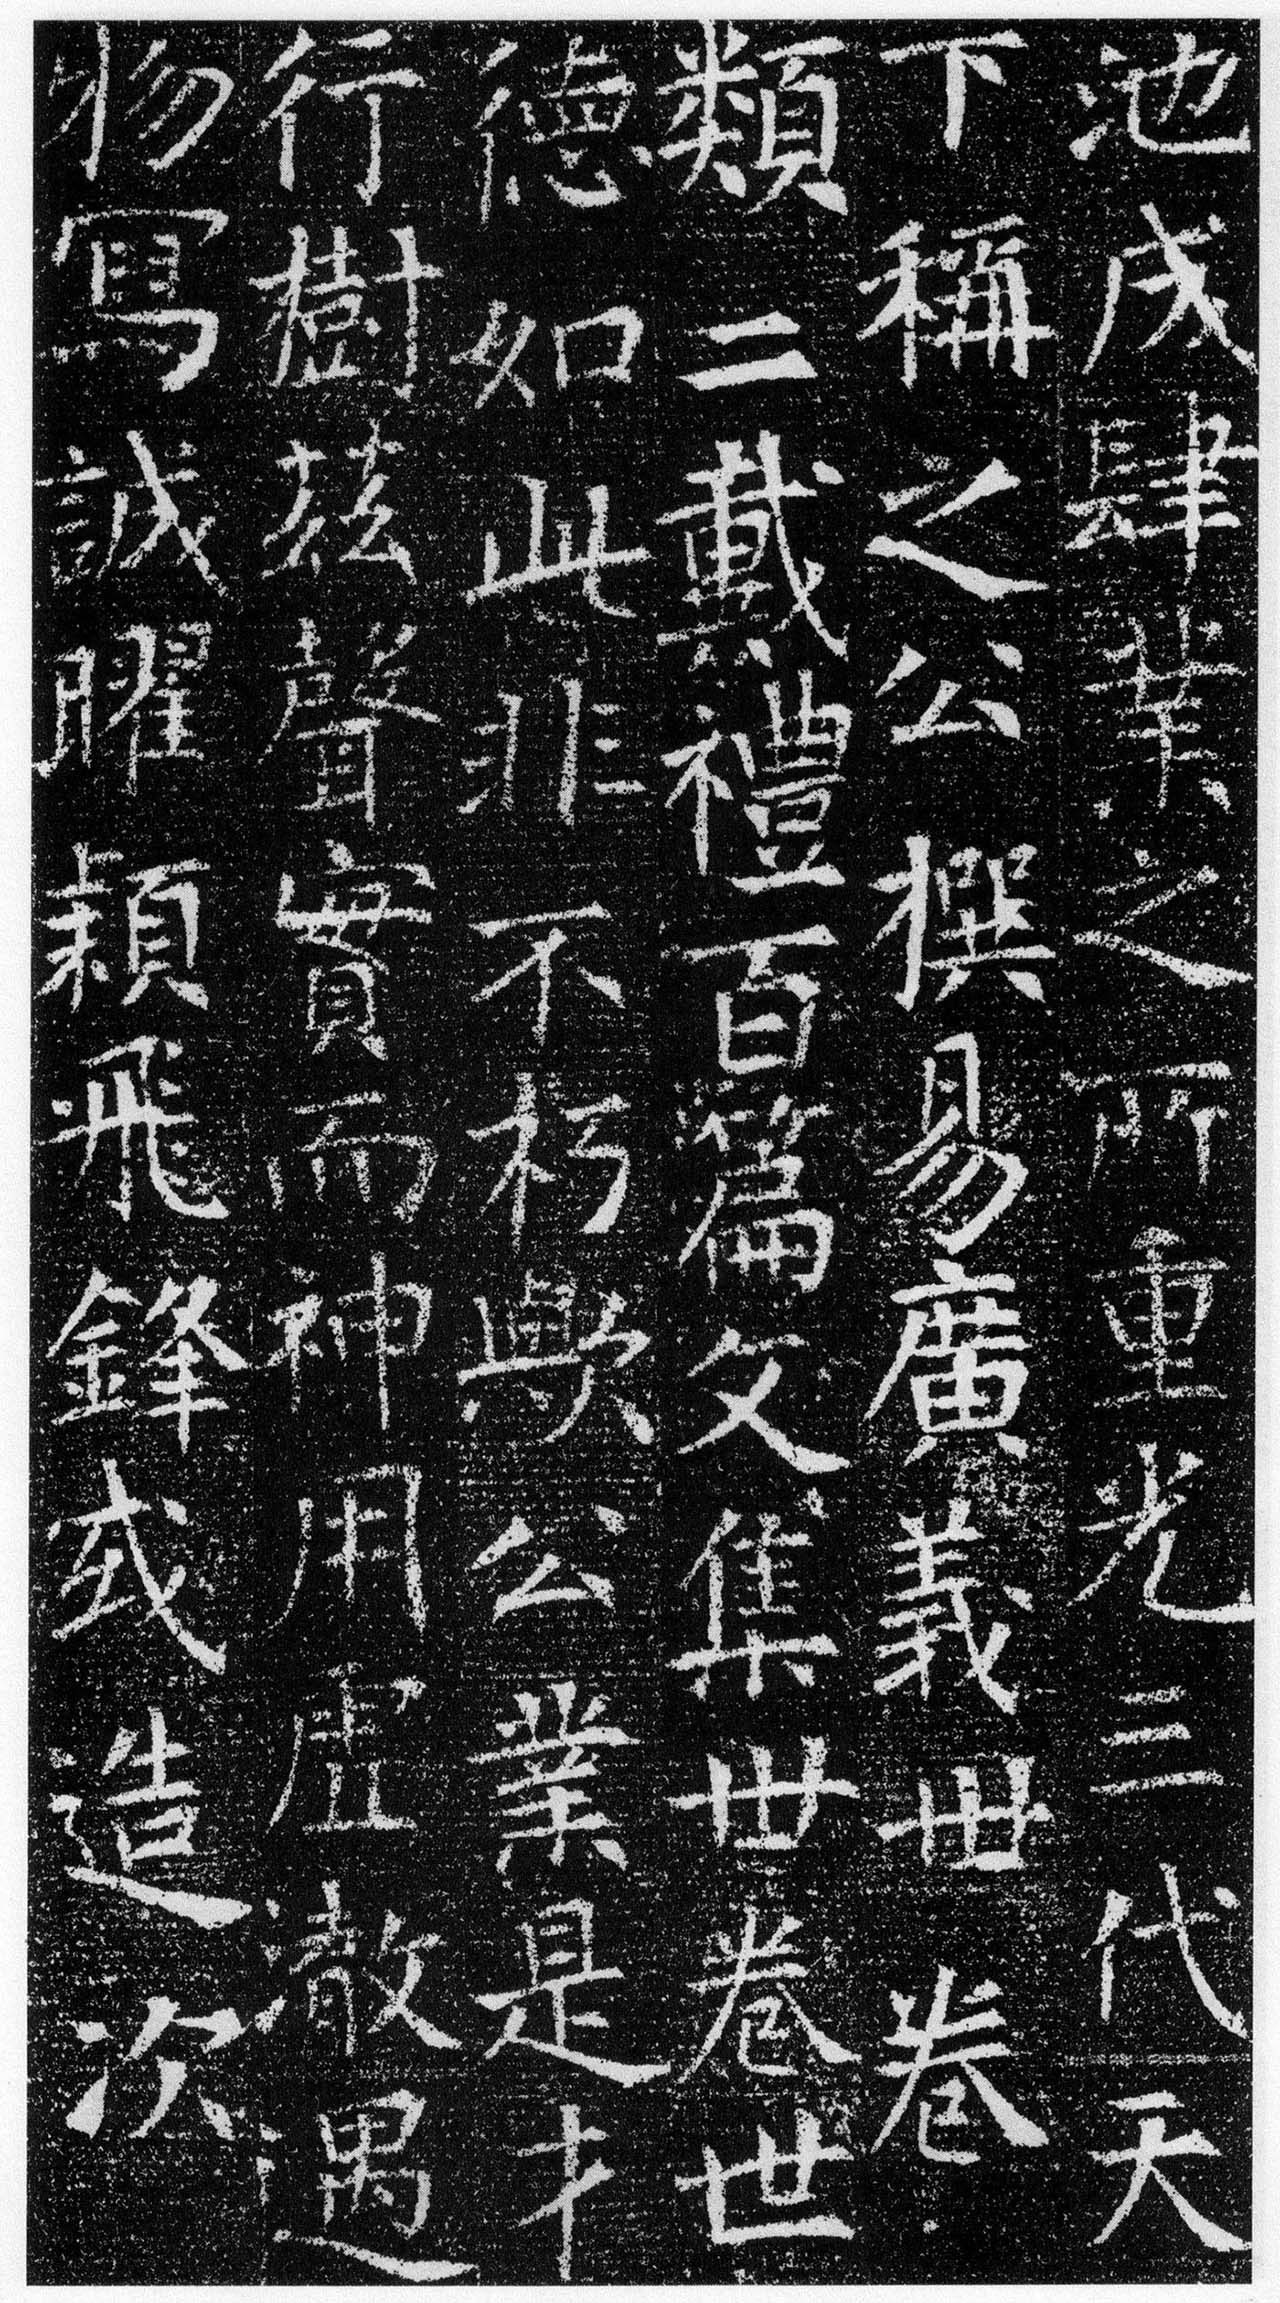 池成肆業之所重光三代天
下稱之公撰易廣義卅卷
類二戴禮百篇文集卌卷世
德如此非不朽歟公業是才
行樹茲聲實而神用虛澈遇
物寫誠曜穎飛鋒或造次